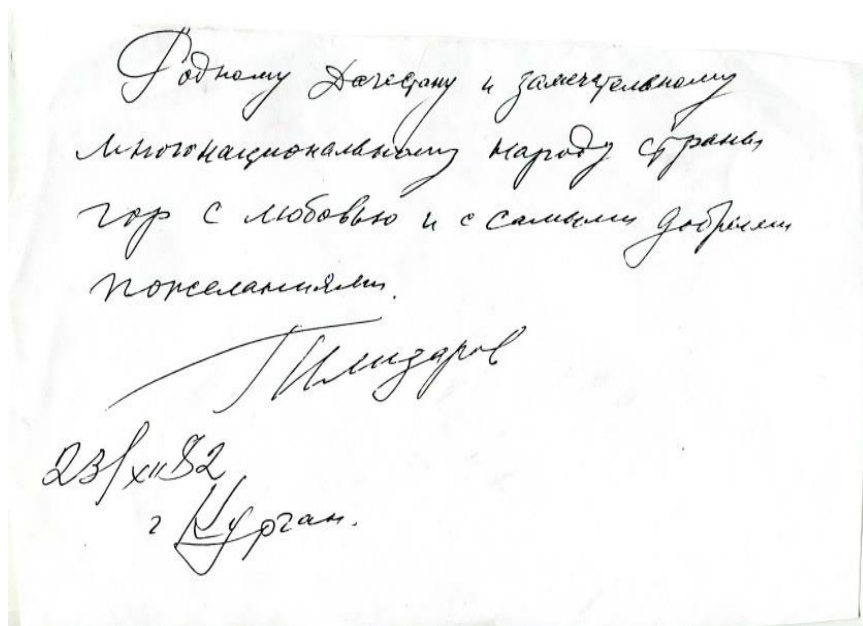 Родному Дагестану и замечательному
многонациональному народу страны
гор с любовью и с самыми добрыми
пожеланиями.
Г Илизаров
23/XII 82
г Курган.